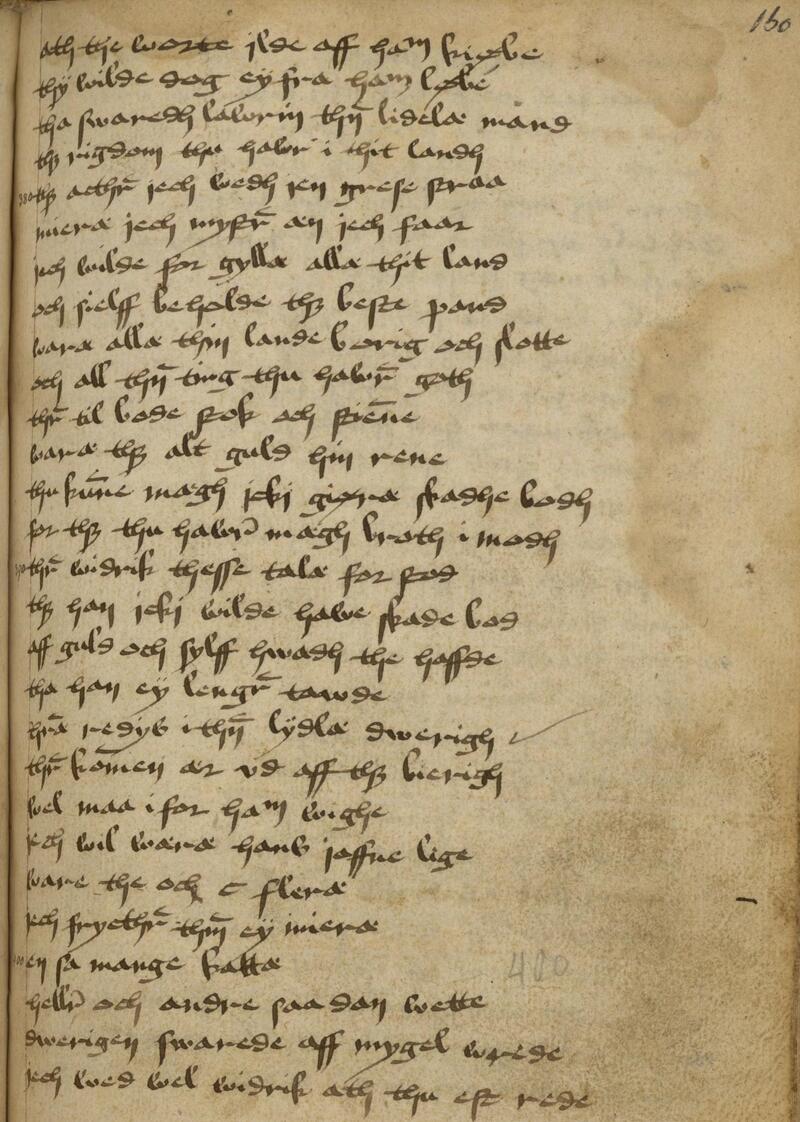 160
ath the worte ilde aff ham kiøbe
thy wilde dog ey fra ham løbe
tha swaredh lawrin thn̄ lidelæ mand
thꝫ rigdom thu hawr i thit landh
thꝫ acthr̄ jech wedh jen grese straa
mieræ jech mystr̄ æn jech faar
jech wilde for gyllæ allæ thit land
och sielff beholde thꝫ beste pand
waræ allæ thin lande borig och slotte
och all thn̄ ting thu hawr̄ goth
thr̄ til bode stok och stiene
waræ thꝫ alt guld hin rene
thu kūne mægh jcki giøræ skadhe bodh
for thꝫ thu hawr̄ mægh broth i modh
thr̄ widrik thesse talæ for stod
thꝫ han jcki wilde hawe skade bod
aff guld och sylff hwadh the haffde
tha han ey lengr̄ tawde
redyb i thn̄ lydlæ dwerigh
thr̄ komen ær vd aff thꝫ bierigh
wel maa i for ham wighe
jech wil wæræ hans jaffne lige
ware the och c fleræ
jech frycthr̄ thm̄ ey mieræ
en sa mange kattæ
hellr̄ och andre saadan wette
480
dwerigen swarede aff mygel wrede
jech wed wel widrik ath thu est rede